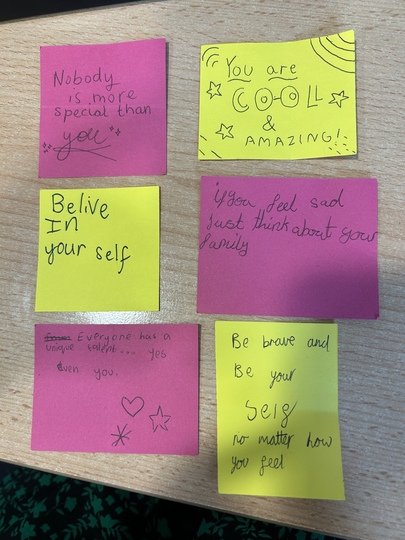 Nobody
is more
special than
you
You are
COOL
&
AMAZING!
Belive
In
your self
if you feel sad
Just think about your
family
Everyone has a
unique talent... yes
even you.
Be brave and
Be your
Self
no matter how
you feel